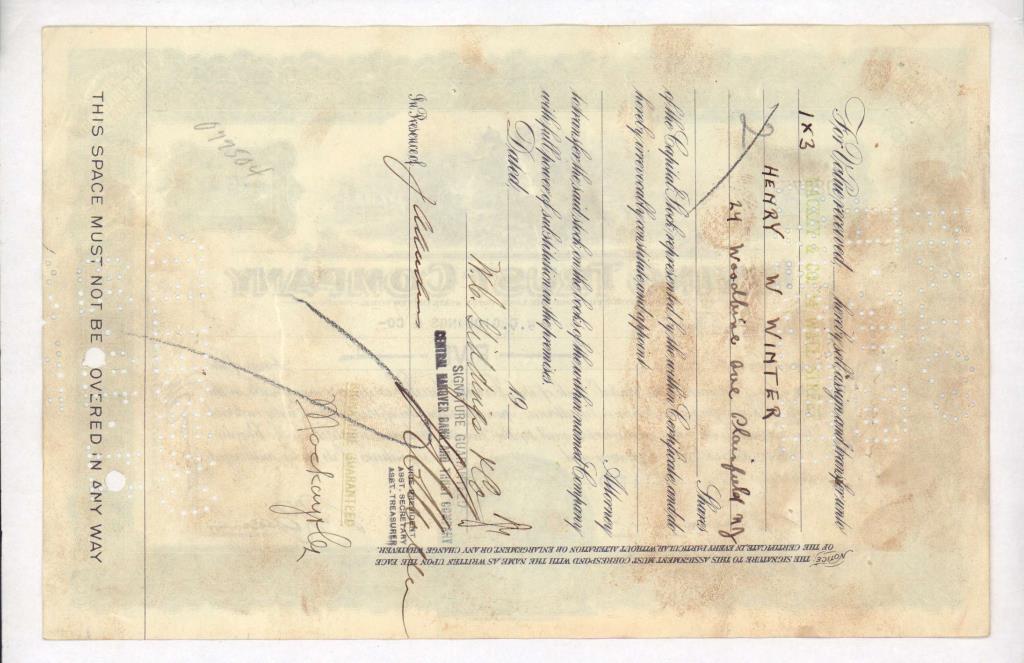 For Value received hereby sell, assign and transfer unto
1 x 3
HENRY W WINTER
24 Woodbine Ave Plainfield NJ
2 Shares
of the Capital Stock represented by the within Certificate, and do
hereby irrevocably constitute and appoint
Attorney
to transfer the said stock on the books of the within named Company
with full power of substitution in the premises.
Dated, 19
W. C. Giddings & Co
In Presence of
SIGNATURE GUARANTEED
CENTRAL HANOVER BANK AND TRUST COMPANY
VICE PRESIDENT
ASST. SECRETARY
ASST. TREASURER
GUARANTEED
NOTICE THE SIGNATURE TO THIS ASSIGNMENT MUST CORRESPOND WITH THE NAME AS WRITTEN UPON THE FACE
OF THE CERTIFICATE, IN EVERY PARTICULAR, WITHOUT ALTERATION OR ENLARGEMENT, OR ANY CHANGE WHATEVER.
THIS SPACE MUST NOT BE OVERED IN ANY WAY
TRUST COMPANY